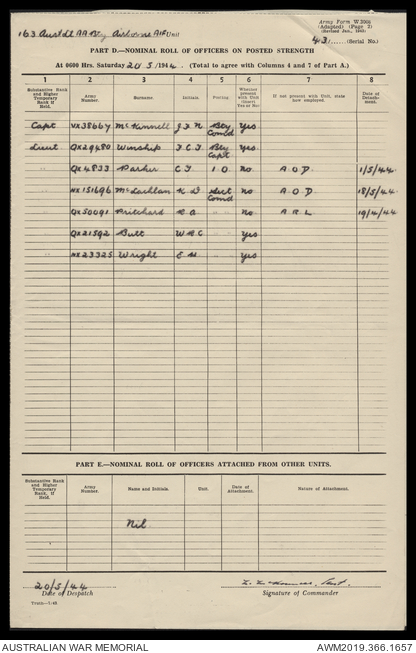 163 Aust Lt AA Bty Airborne AIF Unit
Army Form W.3008
(Adapted) (Page 2)
(Revised Jan., 1943)
43 (Serial No.)
PART D.—NOMINAL ROLL OF OFFICERS ON POSTED STRENGTH
At 0600 Hrs. Saturday 20/5/1944. (Total to agree with Columns 4 and 7 of Part A.)
1 2 3 4 5 6 7 8
Substantive Rank and Higher Temporary Rank if Held. Army Number. Surname. Initials. Posting. Whether present with Unit (Insert Yes or No) If not present with Unit, state how employed. Date of Detachment.
Capt VX38667 McKinnell J.F.N. Bty Comd Yes
Lieut QX29480 Winship F.C.F. Bty Capt Yes
" QX4833 Parker C.F. I O no A.O.D. 1/5/44
" NX151696 McLachlan K D Sect Comd no A.O.D. 18/5/44
" QX50091 Pritchard R A " no A.R.L 19/4/44
" QX21592 Butt W R C yes
" NX23325 Wright E M. yes
PART E.—NOMINAL ROLL OF OFFICERS ATTACHED FROM OTHER UNITS.
Substantive Rank and Higher Temporary Rank, if Held. Army Number. Name and Initials. Unit. Date of Attachment. Nature of Attachment.
Nil
20/5/44
Date of Despatch
Capt.
Signature of Commander
AUSTRALIAN WAR MEMORIAL
AWM2019.366.1657